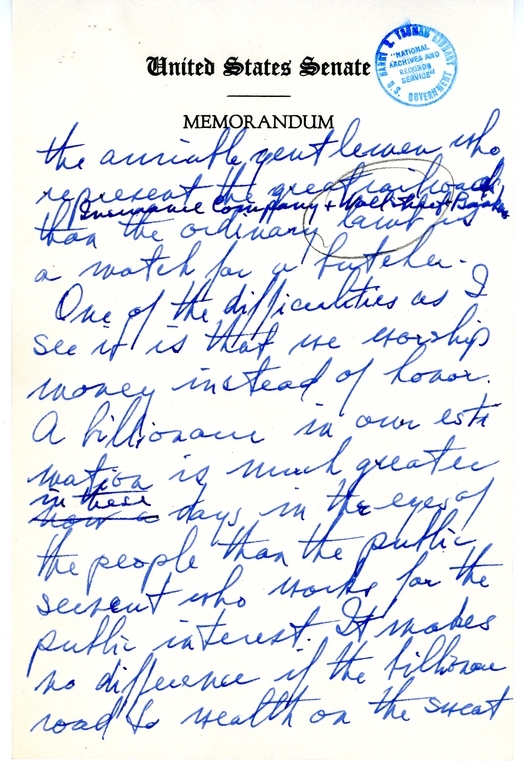 United States Senate
HARRY S. TRUMAN LIBRARY
"NATIONAL
ARCHIVES AND
RECORDS
SERVICE"
U.S. GOVERNMENT
MEMORANDUM
the amiable gentlemen who
represent the great railroads,
Insurance Company + Wall Street Bankers
than the ordinary lamb is
a match for a butcher.
One of the difficulties as I
see it is that we worship
money instead of honor.
A billionaire in our esti
mation is much greater
in these
days in the eyes of
the people than the public
servent who works for the
public interest. It makes
no difference if the billionaire
road to wealth on the sweat